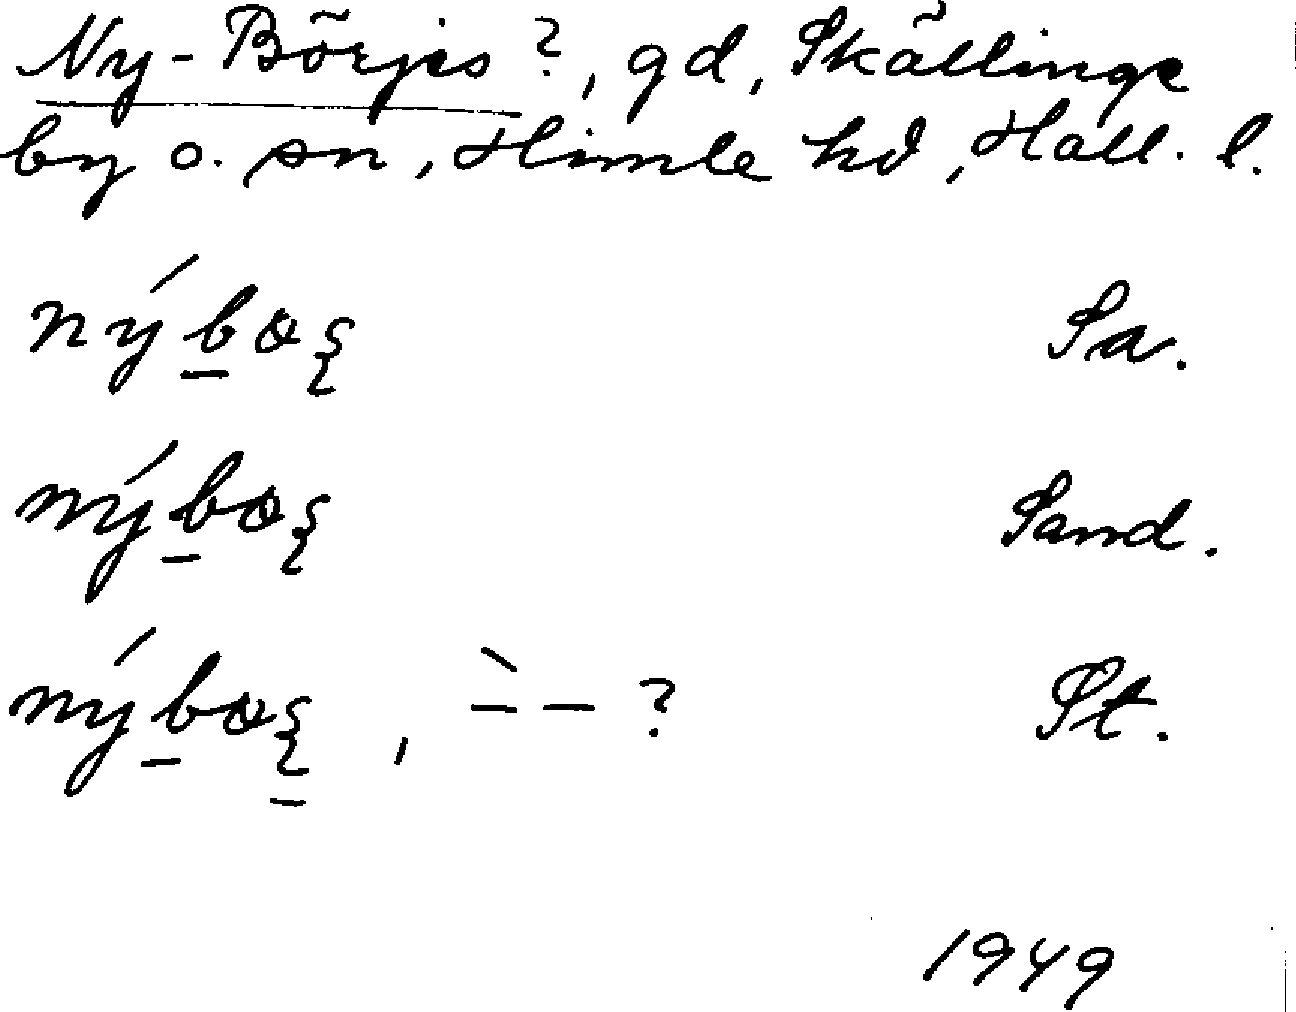 Ny-Börjes?, gd, Skällinge
by o. sn, Himle hd, Hall. l.
nýbɷʂ Sa.
nýbɷʂ Sand.
nýbɷʂ, ̀– – ? St.
1949